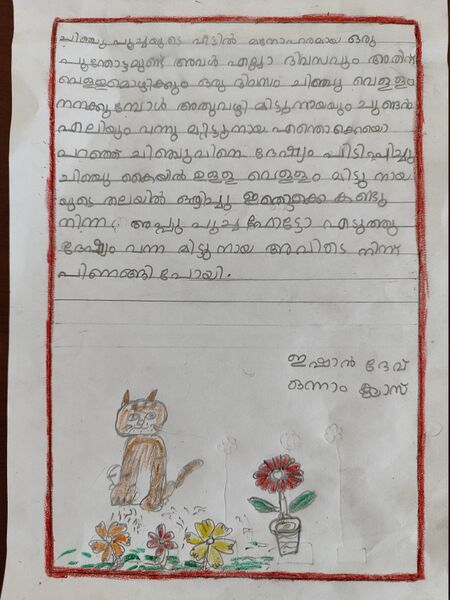 ചിഞ്ചു പൂച്ചയുടെ വീട്ടിൽ മനോഹരമായ ഒരു
പൂന്തോട്ടമുണ്ട് അവൾ എല്ലാ ദിവസവും അതിന്
വെള്ളമൊഴിക്കും ഒരു ദിവസം ചിഞ്ചു വെള്ളം
നനക്കുമ്പോൾ അതുവഴി മിട്ടു നായയും ചുണ്ടെൻ
എലിയും വന്നു മിട്ടുനായ എന്തൊക്കെയോ
പറഞ്ഞ് ചിഞ്ചുവിനെ ദേഷ്യം പിടിപ്പിച്ചു
ചിഞ്ചു കൈയിൽ ഉള്ള വെള്ളം മിട്ടു നായ
യുടെ തലയിൽ ഒഴിച്ചു ഇതൊക്കെ കണ്ടു
നിന്ന അപ്പു പൂച്ച ഫോട്ടോ എടുത്തു
ദേഷ്യം വന്ന മിട്ടു നായ അവിടെ നിന്ന്
പിണങ്ങി പോയി.
ഇഷാൻ ദേവ്
ഒന്നാം ക്ലാസ്